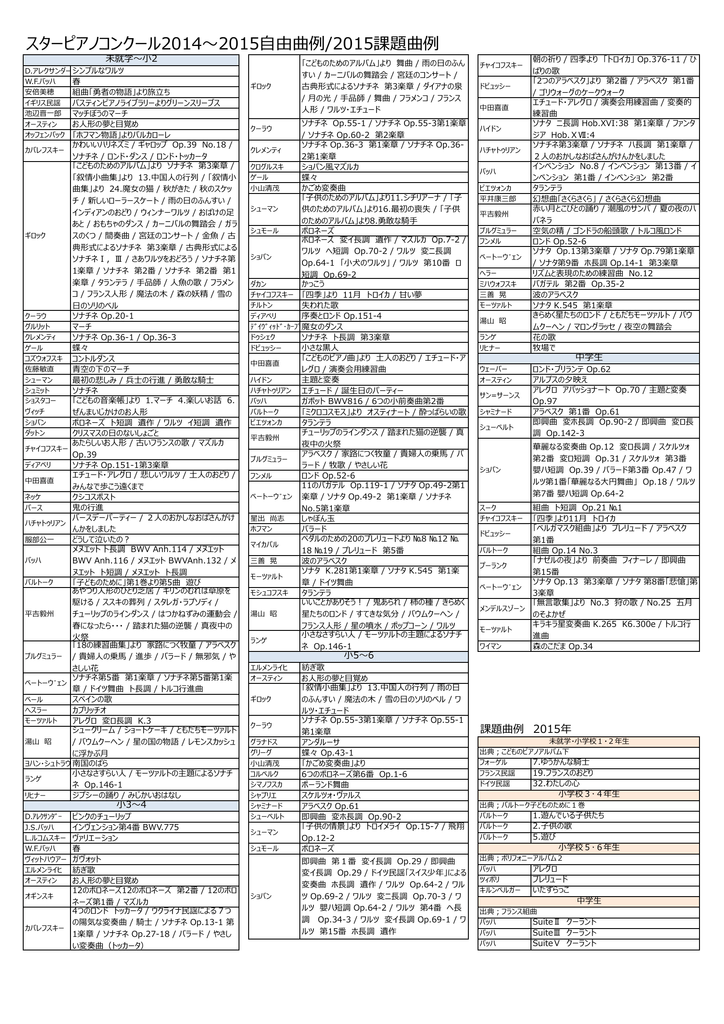 スターピアノコンクール2014～2015自由曲例/2015課題曲例
未就学～小2
D.アレクサンダー シンプルなワルツ
W.F.バッハ 春
安倍美穂 組曲「勇者の物語」より旅立ち
イギリス民謡 バスティンピアノライブラリーよりグリーンスリーブス
池辺晋一郎 マッチぼうのマーチ
オースティン お人形の夢と目覚め
オッフェンバック 「ホフマン物語」よりバルカローレ
カバレフスキー かわいいハリネズミ / ギャロップ Op.39 No.18 /
ソナチネ / ロンド・ダンス / ロンド・トッカータ
ギロック 「こどものためのアルバム」より ソナチネ 第3楽章 /
「叙情小曲集」より 13.中国人の行列 / 「叙情小
曲集」より 24.魔女の猫 / 秋がきた / 秋のスケッ
チ / 新しいローラースケート / 雨の日のふんすい /
インディアンのおどり / ウィンナーワルツ / おばけの足
あと / おもちゃのダンス / カーニバルの舞踏会 / ガラ
スのくつ / 間奏曲 / 宮廷のコンサート / 金魚 / 古
典形式によるソナチネ 第3楽章 / 古典形式による
ソナチネⅠ, Ⅲ / さあワルツをおどろう / ソナチネ第
1楽章 / ソナチネ 第2番 / ソナチネ 第2番 第1
楽章 / タランテラ / 手品師 / 人魚の歌 / フラメン
コ / フランス人形 / 魔法の木 / 森の妖精 / 雪の
日のソリのベル
クーラウ ソナチネ Op.20-1
グルリット マーチ
クレメンティ ソナチネ Op.36-1 / Op.36-3
ゲール 蝶々
コズウォフスキ コントルダンス
佐藤敏直 青空の下のマーチ
シューマン 最初の悲しみ / 兵士の行進 / 勇敢な騎士
シュミット ソナチネ
ショスタコーヴィッチ 「こどもの音楽帳」より 1.マーチ 4.楽しいお話 6.
ぜんまいじかけのお人形
ショパン ポロネーズ ト短調 遺作 / ワルツ イ短調 遺作
ダットン クリスマスの日のないしょごと
チャイコフスキー あたらしいお人形 / 古いフランスの歌 / マズルカ
Op.39
ディアベリ ソナチネ Op.151-1第3楽章
中田喜直 エチュード・アレグロ / 悲しいワルツ / 土人のおどり /
みんなで歩こう遠くまで
ネッケ クシコスポスト
バース 鬼の行進
ハチャトゥリアン バースデーパーティー / ２人のおかしなおばさんがけ
んかをしました
服部公一 どうして泣いたの？
バッハ メヌエット ト長調 BWV Anh.114 / メヌエット
BWV Anh.116 / メヌエット BWVAnh.132 / メ
ヌエット ト短調 / メヌエット ト長調
バルトーク 「子どものために」第1巻より第5曲 遊び
平吉毅州 あやつり人形のひとり芝居 / キリンのむれは草原を
駆ける / ススキの葬列 / スタレガ・ラブソディ /
チューリップのラインダンス / はつかねずみの運動会 /
春になったら・・・ / 踏まれた猫の逆襲 / 真夜中の
火祭
ブルグミュラー 「18の練習曲集」より 家路につく牧童 / アラベスク
/ 貴婦人の乗馬 / 進歩 / バラード / 無邪気 / や
さしい花
ベートーヴェン ソナチネ第5番 第1楽章 / ソナチネ第5番第1楽
章 / ドイツ舞曲 ト長調 / トルコ行進曲
ベール スペインの歌
ヘスラー カプリッチオ
モーツァルト アレグロ 変ロ長調 K.3
湯山 昭 シュークリーム / ショートケーキ / ともだちモーツァルト
/ バウムクーヘン / 星の国の物語 / レモンスカッシュ
に浮かぶ月
ヨハン・シュトラウス 南国のばら
ランゲ 小さなさすらい人 / モーツァルトの主題によるソナチ
ネ Op.146-1
リヒナー ジプシーの踊り / みじかいおはなし
小3～4
D.アレクサンダー ピンクのチューリップ
J.S.バッハ インヴェンション第4番 BWV.775
L.ルコムスキー ヴァリエーション
W.F.バッハ 春
ヴィットハウアー ガヴォット
エルメンライヒ 紡ぎ歌
オースティン お人形の夢と目覚め
オギンスキ 12のポロネーズ12のポロネーズ 第2番 / 12のポロ
ネーズ第1番 / マズルカ
カバレフスキー 4つのロンド トッカータ / ウクライナ民謡による７つ
の陽気な変奏曲 / 騎士 / ソナチネ Op.13-1 第
1楽章 / ソナチネ Op.27-18 / バラード / やさし
い変奏曲（トッカータ）
ギロック 「こどものためのアルバム」より 舞曲 / 雨の日のふん
すい / カーニバルの舞踏会 / 宮廷のコンサート /
古典形式によるソナチネ 第3楽章 / ダイアナの泉
/ 月の光 / 手品師 / 舞曲 / フラメンコ / フランス
人形 / ワルツ・エチュード
クーラウ ソナチネ Op.55-1 / ソナチネ Op.55-3第1楽章
/ ソナチネ Op.60-2 第2楽章
クレメンティ ソナチネ Op.36-3 第1楽章 / ソナチネ Op.36-
2第1楽章
クログルスキ ショパン風マズルカ
ゲール 蝶々
小山清茂 かごめ変奏曲
シューマン 「子供のためのアルバム」より11.シチリアーナ / 「子
供のためのアルバム」より16.最初の喪失 / 「子供
のためのアルバム」より8.勇敢な騎手
シュモール ポロネーズ
ショパン ポロネーズ 変イ長調 遺作 / マズルカ Op.7-2 /
ワルツ ヘ短調 Op.70-2 / ワルツ 変ニ長調
Op.64-1 「小犬のワルツ」 / ワルツ 第10番 ロ
短調 Op.69-2
ダカン かっこう
チャイコフスキー 「四季」より 11月 トロイカ / 甘い夢
チルトン 失われた歌
ディアベリ 序奏とロンド Op.151-4
デイヴィッド・カープ 魔女のダンス
ドゥシェク ソナチネ ト長調 第3楽章
ドビュッシー 小さな黒人
中田喜直 「こどものピアノ曲」より 土人のおどり / エチュード・ア
レグロ / 演奏会用練習曲
ハイドン 主題と変奏
ハチャトゥリアン エチュード / 誕生日のパーティー
バッハ ガボット BWV816 / 6つの小前奏曲第2番
バルトーク 「ミクロコスモス」より オスティナート / 酔っぱらいの歌
ピエツォンカ タランテラ
平吉毅州 チューリップのラインダンス / 踏まれた猫の逆襲 / 真
夜中の火祭
ブルグミュラー アラベスク / 家路につく牧童 / 貴婦人の乗馬 / バ
ラード / 牧歌 / やさしい花
フンメル ロンド Op.52-6
ベートーヴェン 11のバガテル Op.119-1 / ソナタ Op.49-2第1
楽章 / ソナタ Op.49-2 第1楽章 / ソナチネ
No.5第1楽章
星出 尚志 しゃぼん玉
ホフマン バラード
マイカパル ペダルのための20のプレリュードより №8 №12 №
18 №19 / プレリュード 第5番
三善 晃 波のアラベスク
モーツァルト ソナタ K.281第1楽章 / ソナタ K.545 第1楽
章 / ドイツ舞曲
モシュコフスキ タランテラ
湯山 昭 いいことがありそう！ / 鬼あられ / 柿の種 / きらめく
星たちのロンド / すてきな気分 / バウムクーヘン /
フランス人形 / 星の噴水 / ポップコーン / ワルツ
ランゲ 小さなさすらい人 / モーツァルトの主題によるソナチ
ネ Op.146-1
小5～6
エルメンライヒ 紡ぎ歌
オースティン お人形の夢と目覚め
ギロック 「叙情小曲集」より 13.中国人の行列 / 雨の日
のふんすい / 魔法の木 / 雪の日のソリのベル / ワ
ルツ・エチュード
クーラウ ソナチネ Op.55-3第1楽章 / ソナチネ Op.55-1
第1楽章
グラナドス アンダルーサ
グリーグ 蝶々 Op.43-1
小山清茂 「かごめ変奏曲」より
コルベルク 6つのポロネーズ第6番 Op.1-6
シマノフスカ ポーランド舞曲
シャブリエ スケルツォ・ヴァルス
シャミナード アラベスク Op.61
シューベルト 即興曲 変ホ長調 Op.90-2
シューマン 「子供の情景」より トロイメライ Op.15-7 / 飛翔
Op.12-2
シュモール ポロネーズ
ショパン 即興曲 第１番 変イ長調 Op.29 / 即興曲
変イ長調 Op.29 / ドイツ民謡「スイス少年」による
変奏曲 ホ長調 遺作 / ワルツ Op.64-2 / ワル
ツ Op.69-2 / ワルツ 変ニ長調 Op.70-3 / ワ
ルツ 嬰ハ短調 Op.64-2 / ワルツ 第4番 ヘ長
調 Op.34-3 / ワルツ 変イ長調 Op.69-1 / ワ
ルツ 第15番 ホ長調 遺作
チャイコフスキー 朝の祈り / 四季より 「トロイカ」 Op.376-11 / ひ
ばりの歌
ドビュッシー 「2つのアラベスク」より 第2番 / アラベスク 第1番
/ ゴリウォーグのケークウォーク
中田喜直 エチュード・アレグロ / 演奏会用練習曲 / 変奏的
練習曲
ハイドン ソナタ 二長調 Hob.XVI:38 第1楽章 / ファンタ
ジア Hob.ⅩⅦ:4
ハチャトゥリアン ソナチネ第3楽章 / ソナチネ ハ長調 第1楽章 /
２人のおかしなおばさんがけんかをしました
バッハ インベンション No.8 / インベンション 第13番 / イ
ンベンション 第1番 / インベンション 第2番
ピエツォンカ タランテラ
平井康三郎 幻想曲「さくらさくら」 / さくらさくら幻想曲
平吉毅州 赤い月とこびとの踊り / 潮風のサンバ / 夏の夜のハ
バネラ
ブルグミュラー 空気の精 / ゴンドラの船頭歌 / トルコ風ロンド
フンメル ロンド Op.52-6
ベートーヴェン ソナタ Op.13第3楽章 / ソナタ Op.79第1楽章
/ ソナタ第9番 ホ長調 Op.14-1 第3楽章
ヘラー リズムと表現のための練習曲 No.12
ミハウォフスキ バガテル 第2番 Op.35-2
三善 晃 波のアラベスク
モーツァルト ソナタ K.545 第1楽章
湯山 昭 きらめく星たちのロンド / ともだちモーツァルト / バウ
ムクーヘン / マロングラッセ / 夜空の舞踏会
ランゲ 花の歌
リヒナー 牧場で
中学生
ウェーバー ロンド・ブリランテ Op.62
オースティン アルプスの夕映え
サン=サーンス アレグロ アパッショナート Op.70 / 主題と変奏
Op.97
シャミナード アラベスク 第1番 Op.61
シューベルト 即興曲 変ホ長調 Op.90-2 / 即興曲 変ロ長
調 Op.142-3
ショパン 華麗なる変奏曲 Op.12 変ロ長調 / スケルツォ
第2番 変ロ短調 Op.31 / スケルツォ 第3番
嬰ハ短調 Op.39 / バラード第3番 Op.47 / ワ
ルツ第1番「華麗なる大円舞曲」 Op.18 / ワルツ
第7番 嬰ハ短調 Op.64-2
スーク 組曲 ト短調 Op.21 №1
チャイコフスキー 「四季」より11月 トロイカ
ドビュッシー 「ベルガマスク組曲」より プレリュード / アラベスク
第1番
バルトーク 組曲 Op.14 No.3
プーランク 「ナゼルの夜」より 前奏曲 フィナーレ / 即興曲
第15番
ベートーヴェン ソナタ Op.13 第3楽章 / ソナタ 第8番「悲愴」第
3楽章
メンデルスゾーン 「無言歌集」より No.3 狩の歌 / No.25 五月
のそよかぜ
モーツァルト キラキラ星変奏曲 K.265 K6.300e / トルコ行
進曲
ワイマン 森のこだま Op.34
課題曲例 2015年
未就学・小学校１・２年生
出典；こどものピアノアルバム下
フォーゲル 7.ゆうかんな騎士
フランス民謡 19.フランスのおどり
ドイツ民謡 32.わたしの心
小学校３・４年生
出典；バルトーク子どものために１巻
バルトーク 1.遊んでいる子供たち
バルトーク 2.子供の歌
バルトーク 5.遊び
小学校５・６年生
出典；ポリフォニーアルバム２
バッハ アレグロ
ツィポリ プレリュード
キルンベルガー いたずらっこ
中学生
出典；フランス組曲
バッハ SuiteⅡ クーラント
バッハ SuiteⅢ クーラント
バッハ SuiteⅤ クーラント